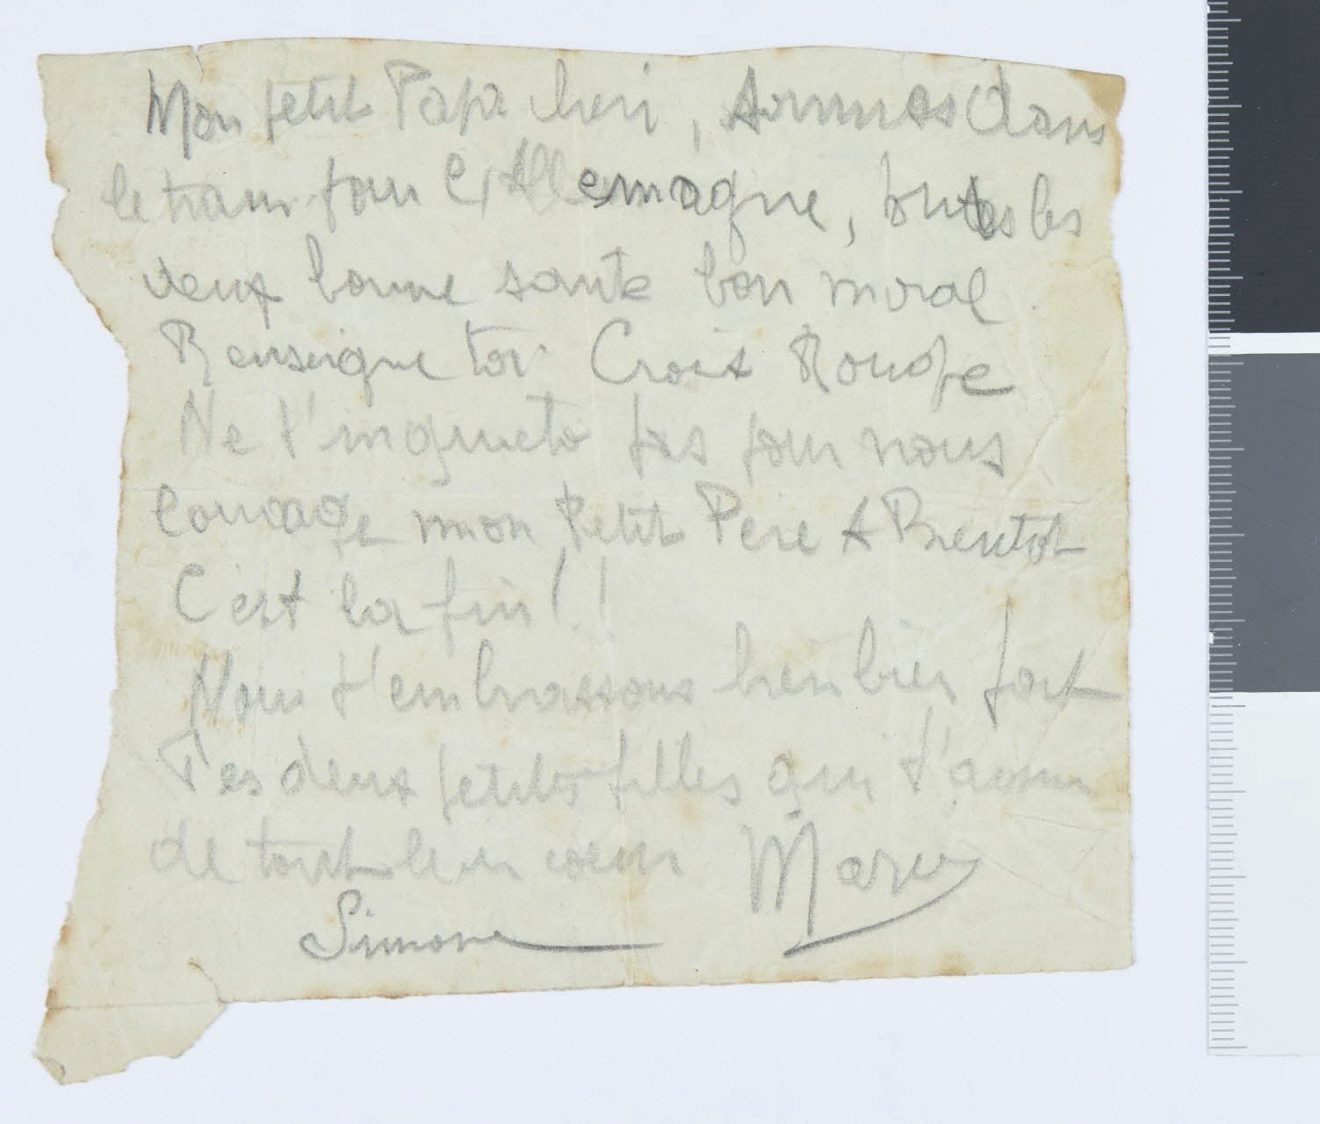 Mon petit Papa cheri, sommes dans
le train pour l'Allemagne, toutes les
deux bonne sante bon moral.
Renseigne toi Croix Rouge
Ne t'inquiete pas pour nous
courage mon Petit Père A Bientot
C'est la fin!!
Nous t'embrassons bien bien fort
Tes deux petites filles qui t'aime
de tout leur coeur Marie
Simone